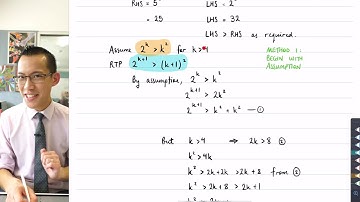 RHS = 5² LHS = 2⁵
= 25 LHS = 32
LHS > RHS as required.
Assume 2ᵏ > k² for k>4
RTP 2ᵏ⁺¹ > (k+1)²
METHOD 1:
BEGIN WITH
ASSUMPTION
By assumption, 2ᵏ > k²
2ᵏ⁺¹ > 2k²
2ᵏ⁺¹ > k² + k² — ①
But k > 4 ⇒ 2k > 8 ②
k² > 4k
k² > 2k + 2k > 2k + 8 from ②
k² > 2k + 8 > 2k + 1